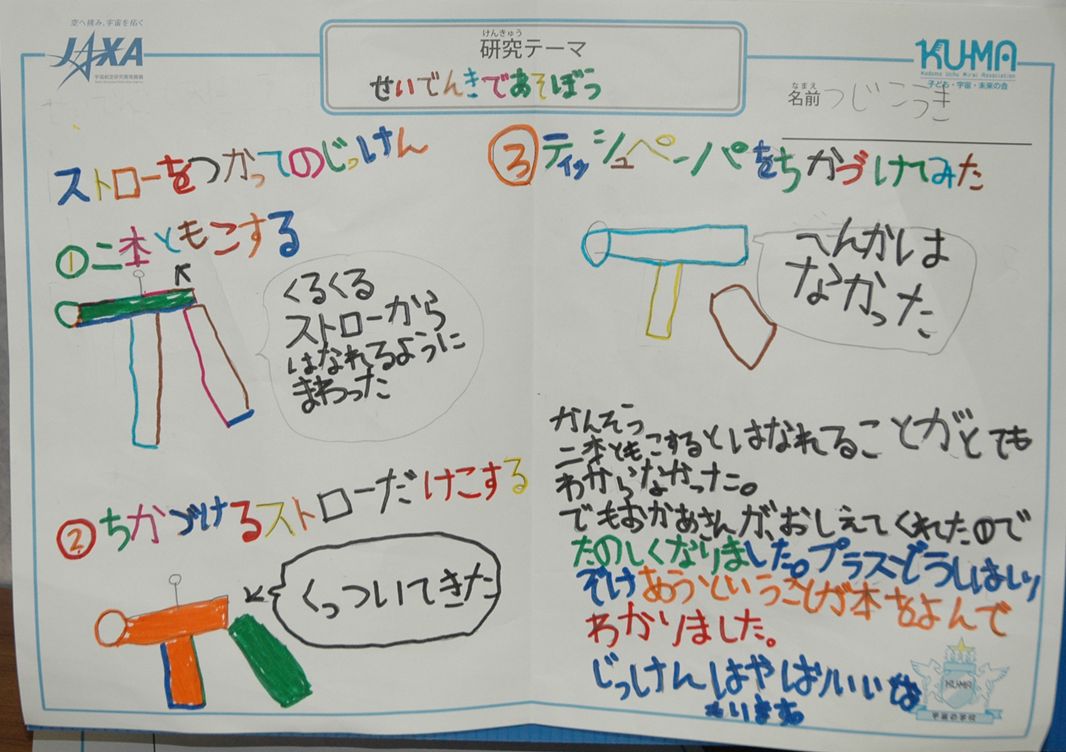 空へ挑み、宇宙を拓く
JAXA
けんきゅう
研究テーマ
せいでんきであそぼう
KU-MA
Kodomo Uchu Mirai Association
子ども・宇宙・未来の会
なまえ
名前 つじこうき
ストローをつかってのじっけん
①二本ともこする
くるくる
ストローから
はなれるように
まわった
②ちかづけるストローだけこする
くっついてきた
③ティッシュペーパをちかづけてみた
へんかは
なかった
かんそう
二本ともこするとはなれることがとても
わからなかった。
でもおかあさんが、おしえてくれたので
たのしくなりました。プラスどうしはしり
ぞけあうということが本をよんで
わかりました。
じっけんはやぱいいな
KU-MA
宇宙の学校